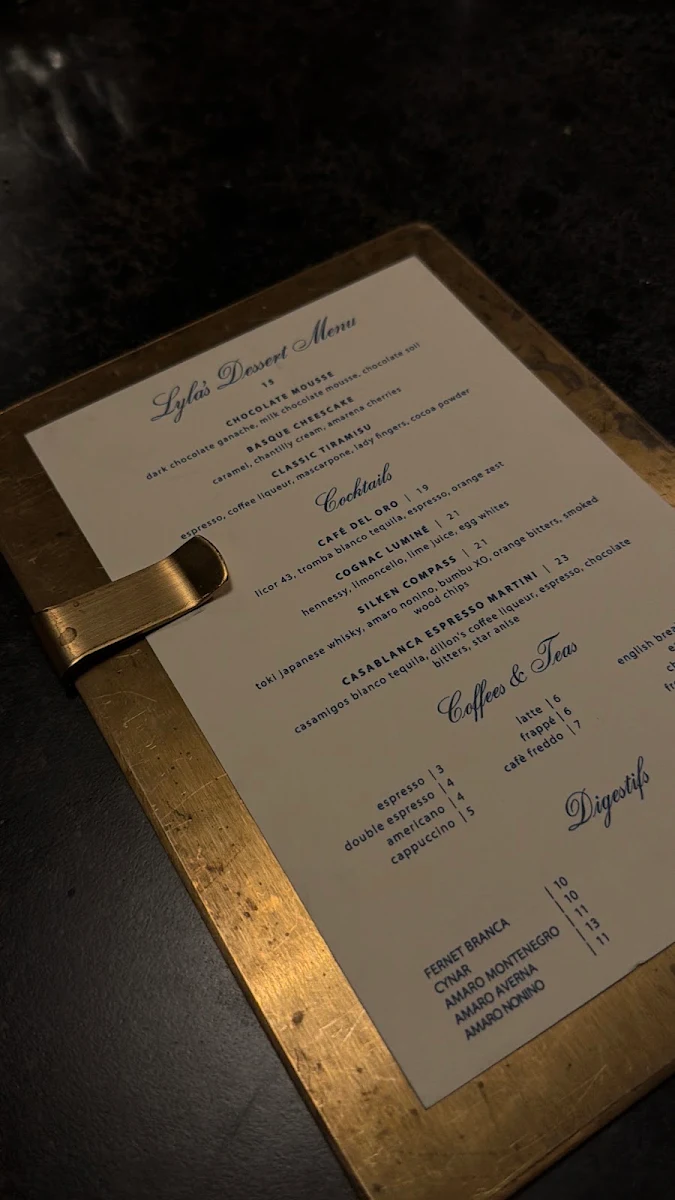 Lyla's Dessert Menu
15
CHOCOLATE MOUSSE
dark chocolate ganache, milk chocolate mousse, chocolate soil
BASQUE CHEESCAKE
caramel, chantilly cream, amarena cherries
CLASSIC TIRAMISU
espresso, coffee liqueur, mascarpone, lady fingers, cocoa powder
Cocktails
CAFÉ DEL ORO | 19
licor 43, tromba blanco tequila, espresso, orange zest
COGNAC LUMINÉ | 21
hennessy, limoncello, lime juice, egg whites
SILKEN COMPASS | 21
toki japanese whisky, amaro nonino, bumbu XO, orange bitters, smoked
wood chips
CASABLANCA ESPRESSO MARTINI | 23
casamigos blanco tequila, dillon's coffee liqueur, espresso, chocolate
bitters, star anise
Coffees & Teas
espresso | 3
double espresso | 4
americano | 4
cappuccino | 5
latte | 6
frappé | 6
cafè freddo | 7
english
Digestifs
FERNET BRANCA | 10
CYNAR | 10
AMARO MONTENEGRO | 11
AMARO AVERNA | 13
AMARO NONINO | 11